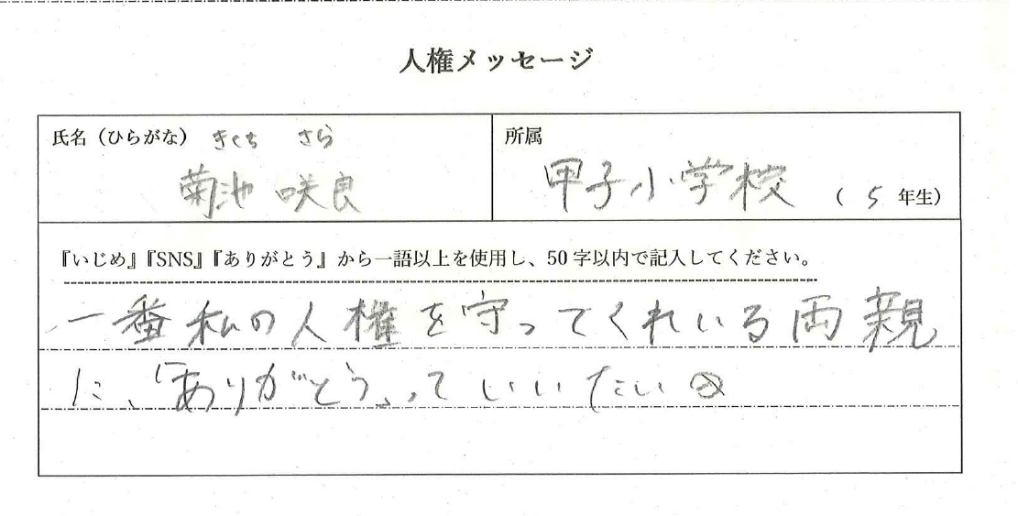 人権メッセージ
氏名（ひらがな） きくち さら
菊池 咲良
所属
甲子小学校 （ 5 年生）
『いじめ』『SNS』『ありがとう』から一語以上を使用し、50字以内で記入してください。
一番私の人権を守ってくれいる両親
に、「ありがとう」っていいたい